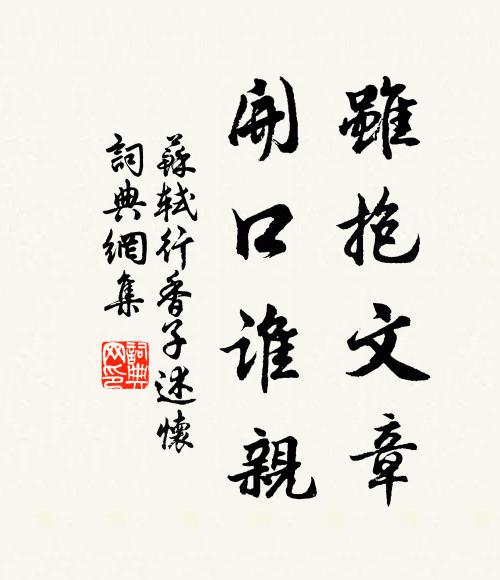 雖抱文章
開口誰親
蘇軾行香子述懷
詞典網集
詞典
网印